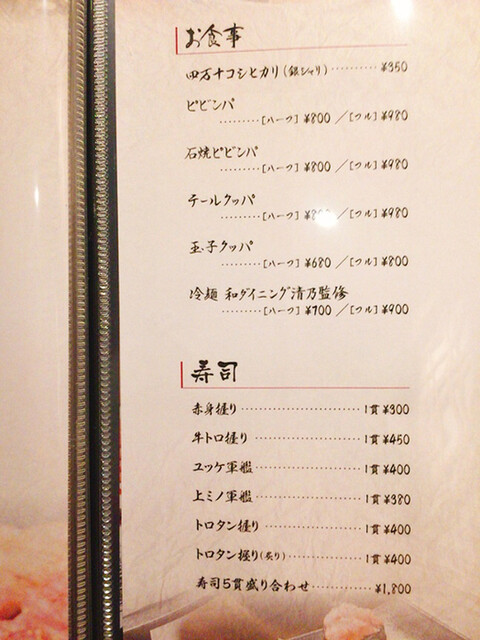 お食事
四万十コシヒカリ(銀シャリ)‥‥‥‥¥350
ビビンパ
‥‥‥‥[ハーフ]¥800/[フル]¥980
石焼ビビンパ
‥‥‥‥[ハーフ]¥800/[フル]¥980
テールクッパ
‥‥‥‥[ハーフ] /[フル]¥980
玉子クッパ
‥‥‥‥[ハーフ]¥680/[フル]¥800
冷麺 和ダイニング清乃監修
‥‥‥‥[ハーフ]¥700/[フル]¥900
寿司
赤身握り‥‥‥‥1貫¥300
牛トロ握り‥‥‥‥1貫¥450
ユッケ軍艦‥‥‥‥1貫¥400
上ミノ軍艦‥‥‥‥1貫¥380
トロタン握り‥‥‥‥1貫¥400
トロタン握り(炙り)‥‥‥‥1貫¥400
寿司5貫盛り合わせ‥‥‥‥¥1,800